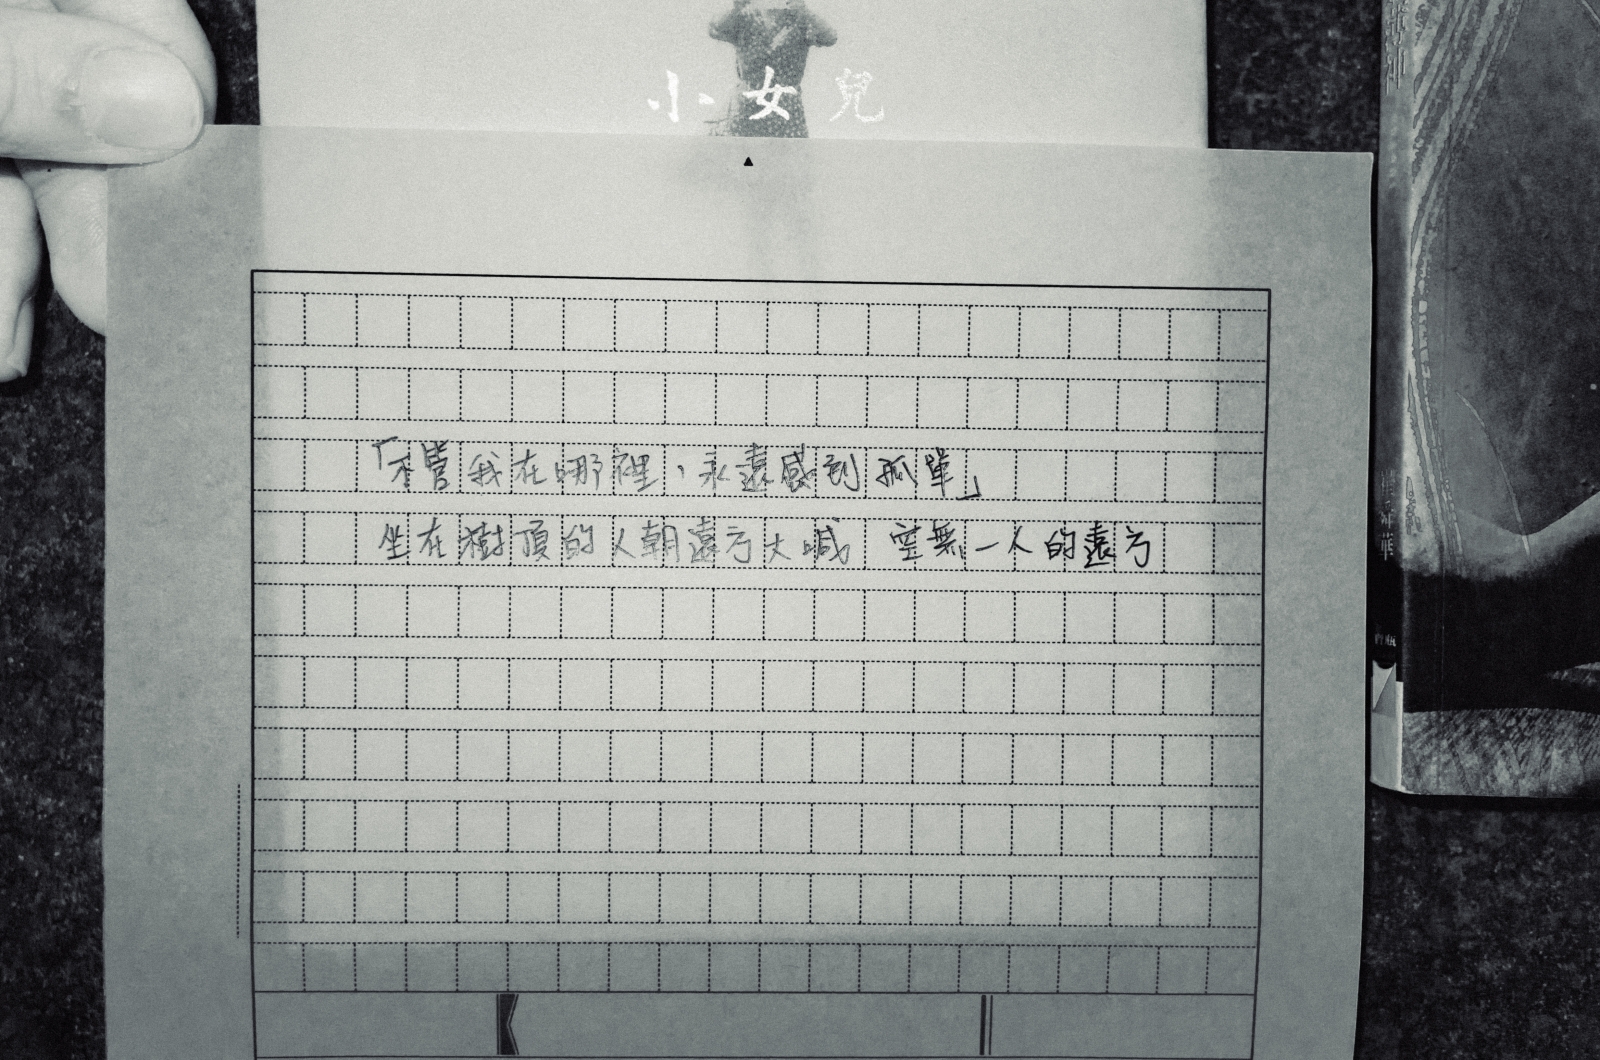 小女兒
「不管我在哪裡,永遠感到孤單」
坐在樹頂的人朝遠方大喊 空無一人的遠方